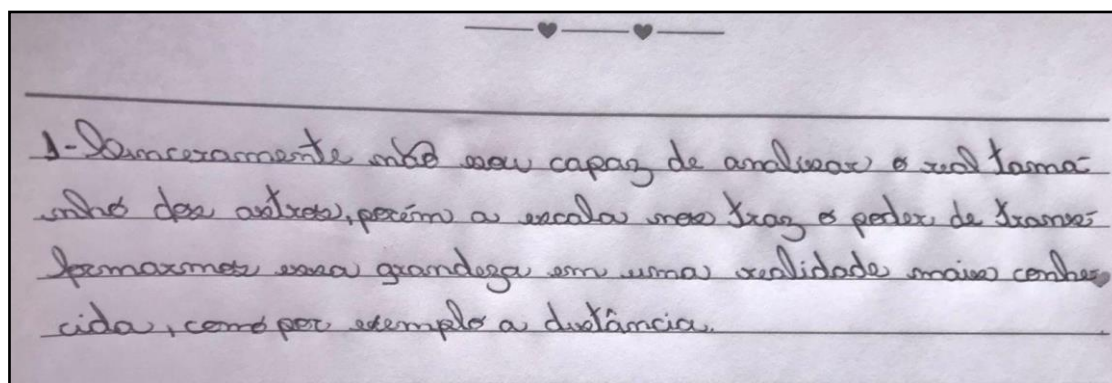 1- Sinceramente não sou capaz de analisar o real tama-
nho dos astros, porém a escala nos traz o poder de trans-
formarmos essa grandeza em uma realidade mais conhe-
cida, como por exemplo a distância.